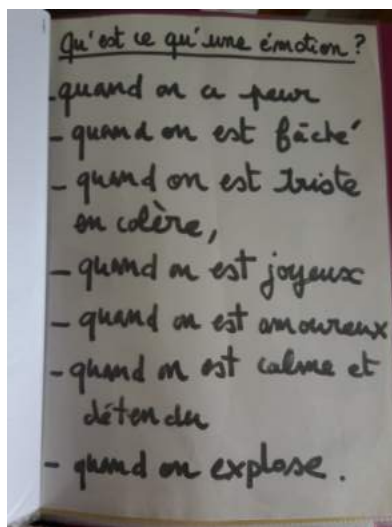 Qu'est ce qu'une émotion ?
-quand on a peur
- quand on est fâché
- quand on est triste
en colère,
- quand on est joyeux
- quand on est amoureux
- quand on est calme et
détendu
- quand on explose.